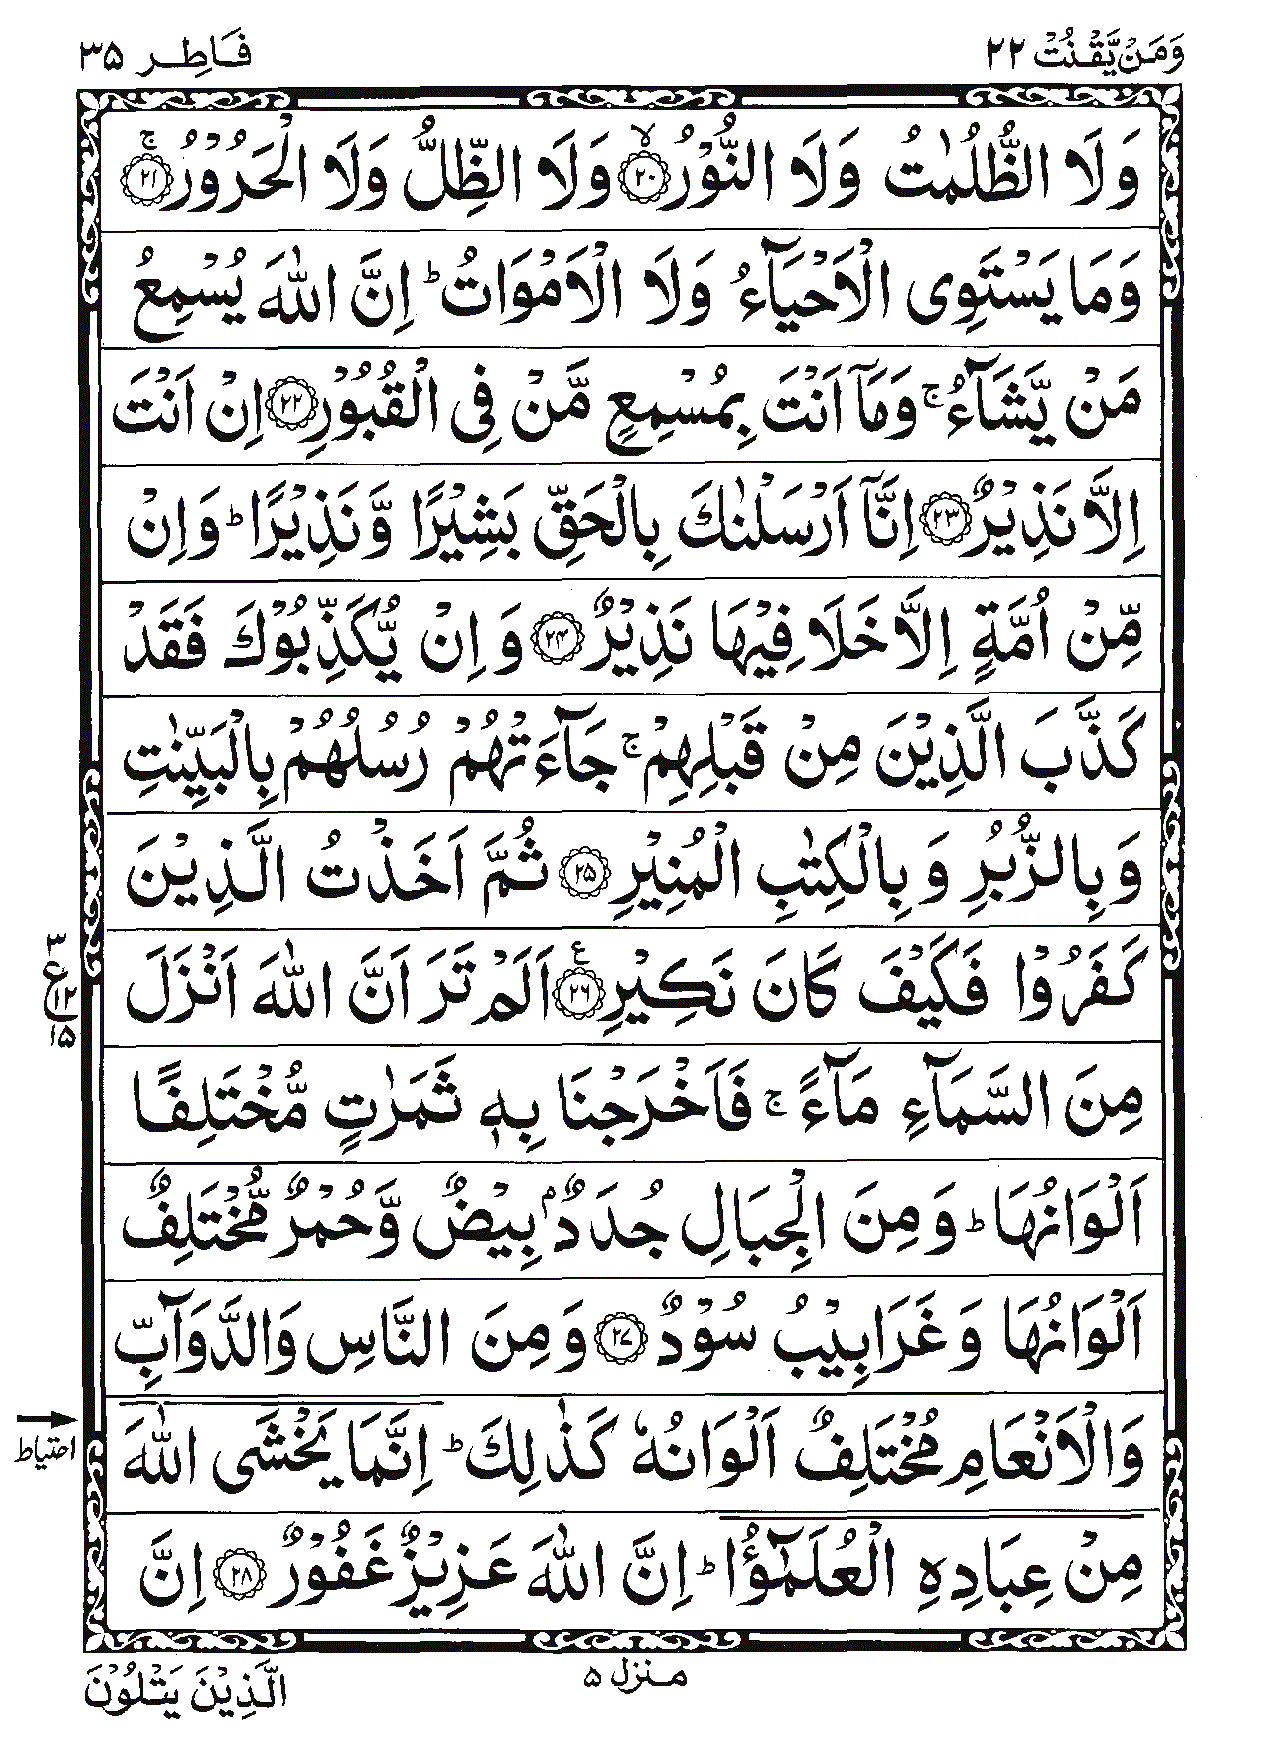 وَمَنْ يَّقْنُتْ ٢٢
فَاطِر ٣٥
وَلَا الظُّلُمٰتُ وَلَا النُّوْرُ ۙ‏﴿۲۰﴾ وَلَا الظِّلُّ وَلَا الْحَرُوْرُ ۚ‏﴿۲۱﴾
وَمَا يَسْتَوِى الْاَحْيَآءُ وَلَا الْاَمْوَاتُ ؕ اِنَّ اللّٰهَ يُسْمِعُ
مَنْ يَّشَآءُ ۚ وَمَاۤ اَنْتَ بِمُسْمِعٍ مَّنْ فِى الْقُبُوْرِ ﴿۲۲﴾ اِنْ اَنْتَ
اِلَّا نَذِيْرٌ ﴿۲۳﴾ اِنَّاۤ اَرْسَلْنٰكَ بِالْحَقِّ بَشِيْرًا وَّنَذِيْرًا ؕ وَاِنْ
مِّنْ اُمَّةٍ اِلَّا خَلَا فِيْهَا نَذِيْرٌ ﴿۲۴﴾ وَاِنْ يُّكَذِّبُوْكَ فَقَدْ
كَذَّبَ الَّذِيْنَ مِنْ قَبْلِهِمْ ۚ جَآءَتْهُمْ رُسُلُهُمْ بِالْبَيِّنٰتِ
وَبِالزُّبُرِ وَبِالْكِتٰبِ الْمُنِيْرِ ﴿۲۵﴾ ثُمَّ اَخَذْتُ الَّذِيْنَ
كَفَرُوْا فَكَيْفَ كَانَ نَكِيْرِ ﴿۲۶﴾ع اَلَمْ تَرَ اَنَّ اللّٰهَ اَنْزَلَ
٣
ع
١٢
١٥
مِنَ السَّمَآءِ مَآءً ۚ فَاَخْرَجْنَا بِهٖ ثَمَرٰتٍ مُّخْتَلِفًا
اَلْوَانُهَا ؕ وَمِنَ الْجِبَالِ جُدَدٌۢ بِيْضٌ وَّحُمْرٌ مُّخْتَلِفٌ
اَلْوَانُهَا وَغَرَابِيْبُ سُوْدٌ ﴿۲۷﴾ وَمِنَ النَّاسِ وَالدَّوَآبِّ
وَالْاَنْعَامِ مُخْتَلِفٌ اَلْوَانُهٗ كَذٰلِكَ ؕ اِنَّمَا يَخْشَى اللّٰهَ
احتياط
مِنْ عِبَادِهِ الْعُلَمٰٓؤُا ؕ اِنَّ اللّٰهَ عَزِيْزٌ غَفُوْرٌ ﴿۲۸﴾ اِنَّ
منزل ٥
الَّذِيْنَ يَتْلُوْنَ